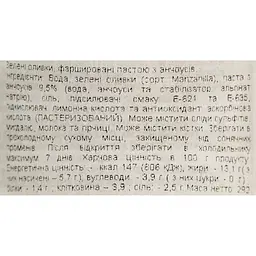 Зелені оливки, фаршировані пастою з анчоусів.
Інгредієнти: Вода, зелені оливки (сорт Manzanilla), паста з
анчоусів 9,5% (вода, анчоуси та стабілізатор альгінат
натрію), сіль, підсилювачі смаку Е-621 та Е-635,
підкислювач лимонна кислота та антиоксидант аскорбінова
кислота (ПАСТЕРИЗОВАНИЙ). Може містити сліди сульфітів,
мигдалю, молока та гірчиці. Може містити кістки. Зберігати в
прохолодному сухому місці, захищеному від сонячних
променів. Після відкриття зберігати в холодильнику
максимум 7 днів. Харчова цінність в 100 г продукту:
Енергетична цінність - ккал 147 (606 кДж), жири - 13,1 г (з
них насичені - 5,7 г), вуглеводи - 3,9 г (з них цукри - 0 г),
білки - 1,4 г, клітковина - 3,9, сіль - 2,5 г. Маса нетто 292